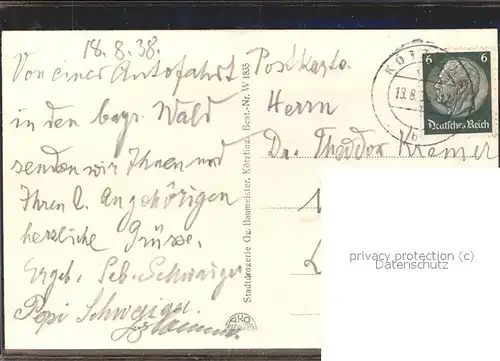 18.8.38.
Von einer Autofahrt
in den bayr. Wald
senden wir Ihnen und
Ihren l. Angehörigen
herzliche Grüsse.
Ergeb. Seb. Schwaiger
Pepi Schwaiger
Stadtdrogerie Gg. Baumeister, Kötzting. Best.-Nr. W 1835
Postkarte
Herrn
Dr. Theodor Kramer
KÖTZ
18.8.3
6 6
Deutsches Reich
privacy protection (c)
Datenschutz